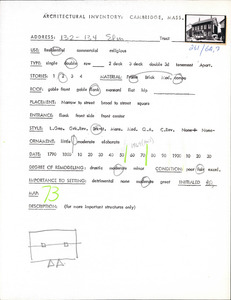 ARCHITECTURAL INVENTORY: CAMBRIDGE, MASS.
ADDRESS: 132-134 Elm Tract
USE: Residential commercial religious
TYPE: single double row 2 deck 3 deck double 3d tenement Apart.
STORIES: 1 2 3 4 MATERIAL: Frame Brick Med.
ROOF: gable front gable flank mansard flat hip
PLACEMENT: Narrow to street broad to street square
ENTRANCE: flank front side front center
STYLE: Mans. Med. Q.A. C.Rev. None
ORNAMENT: little moderate elaborate
DATE: 1790 1800 10 20 30 40 50 60 70 80 90 1900 10 20 30
DEGREE OF REMODELING: drastic moderate minor CONDITION: poor fair excel.
IMPORTANCE TO SETTING: detrimental none moderate great ENTRIES
MAP: 73
DESCRIPTION: (for more important structures only)